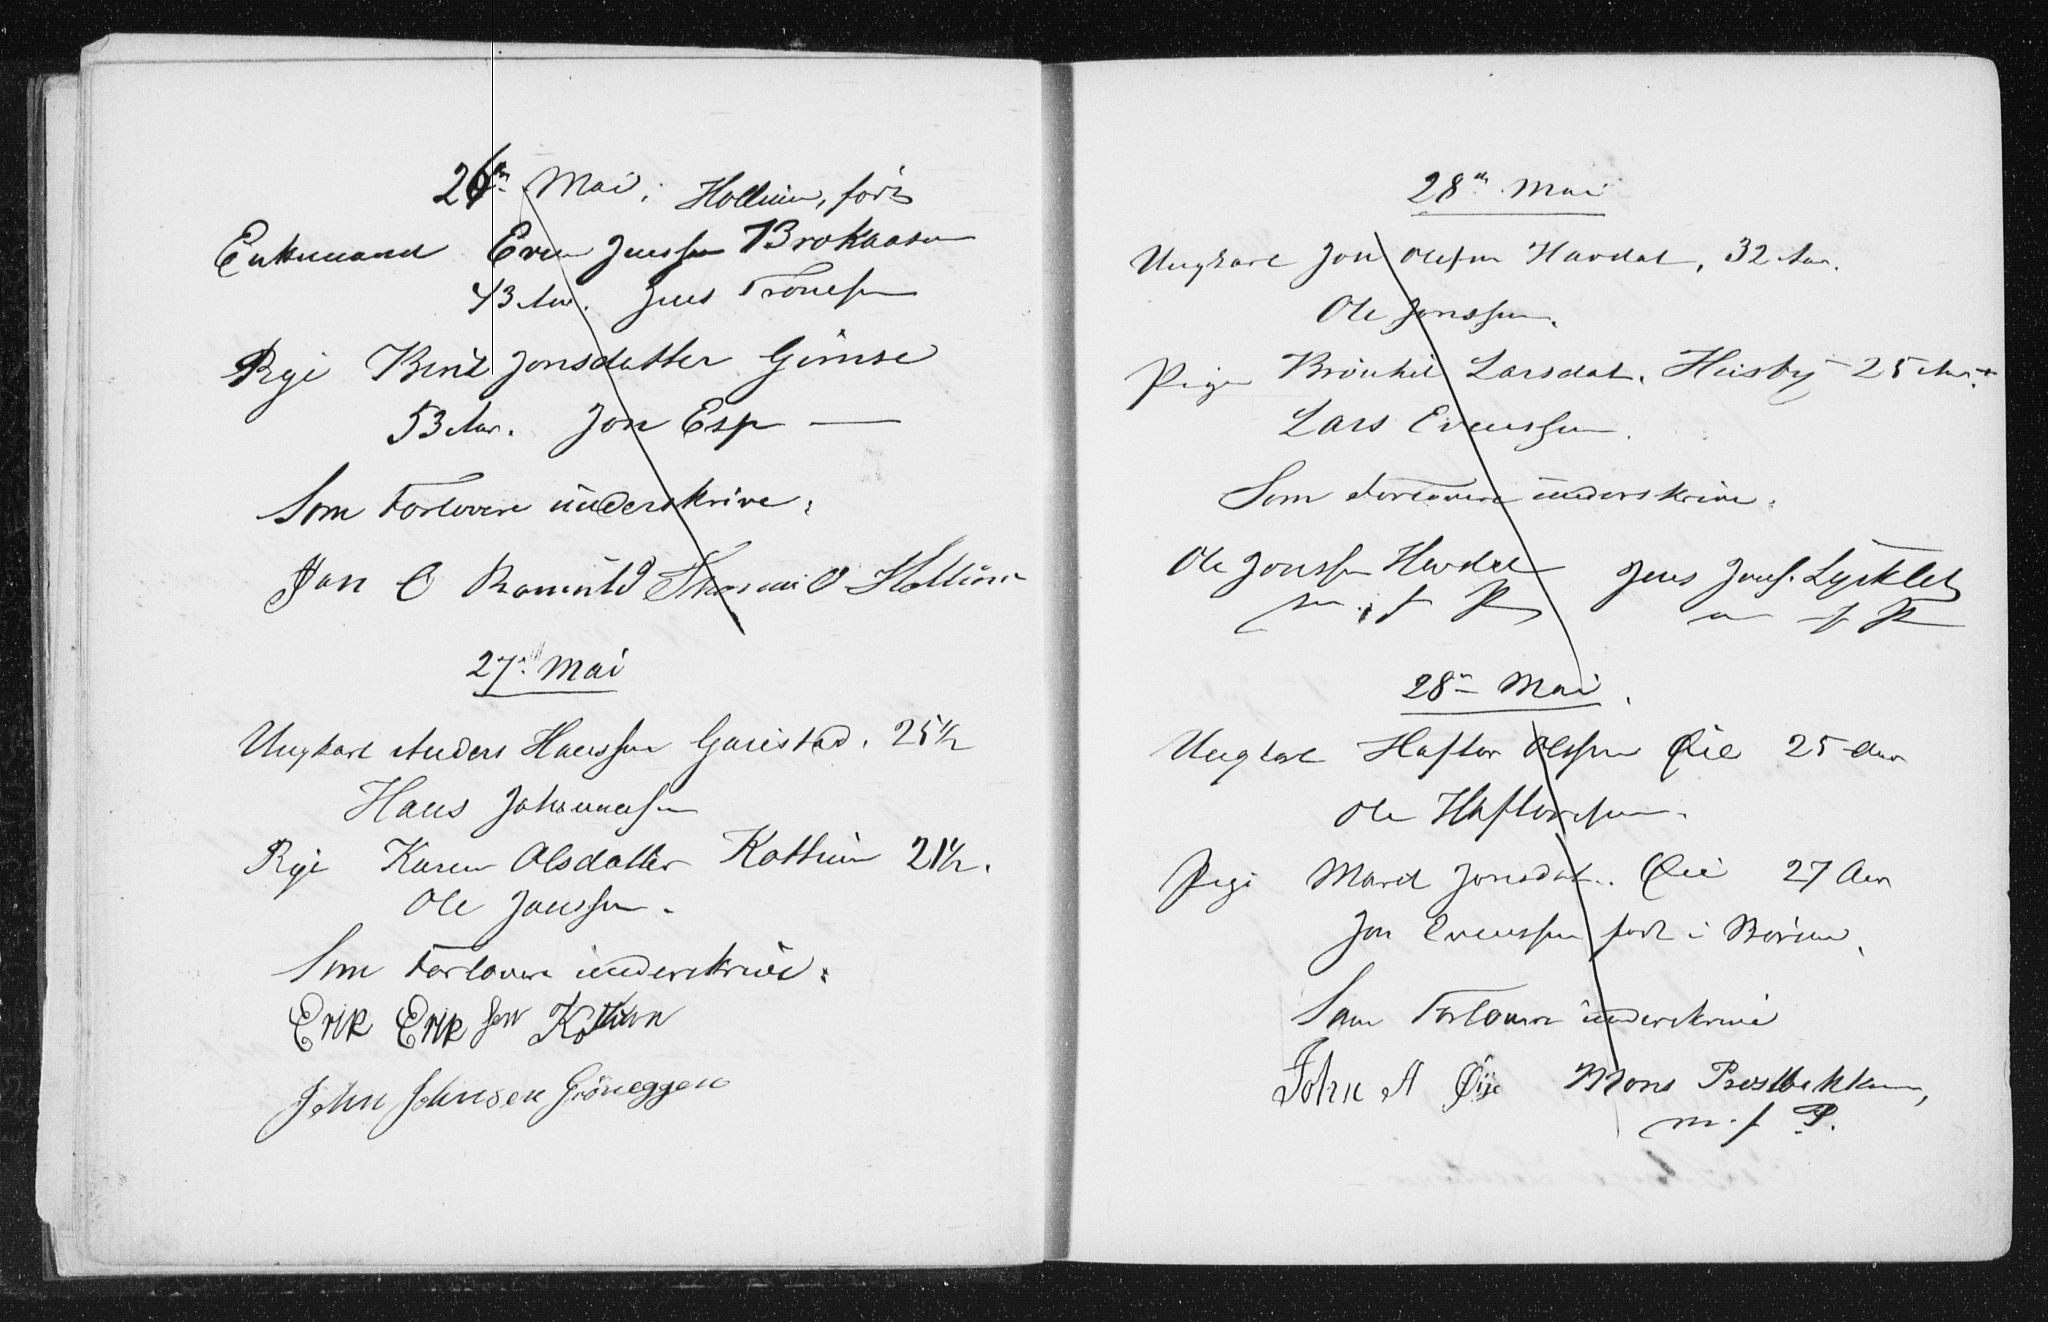 26de Mai. Hollum, født
Enkemand Even Jenssen Brokaasen
43 Aar. Jens Tronesen
Pige Berit Jonsdatter Gimse
53 Aar. Jon Esp —
Som Forlovere underskrive:
Jon O Ramnld O Hollum
27. Mai
Ungkarl Anders Hanssen Gaustad. 25½
Hans Johannessen
Pige Karen Olsdatter Kottum 21½.
Ole Jonssen.
Som Forlovere underskrive:
Erik Erik sen Kottum
John Johnsen Gröneggen
28de Mai
Ungkarl Jon Olssen Havdal, 32 Aar.
Ole Jonssen.
Pige Larsdat. Husby 25 Aar.
Lars Evenssen.
Som Forlovere underskrive:
Ole Jonssen Havdal Jens Jens. Lyseklet
m. f P m f P
28de Mai.
Ungkarl Haftor Olssen Øie 25 Aar
Ole Haftorsen.
Pige Marit Jonsdat. Øie 27 Aar
Jon Evenssen født i
Som Forlovere underskrive
John A Öije Mons Prestbakken,
m. f P.